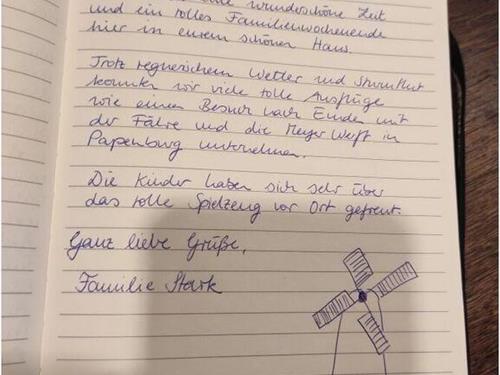 eine wunderschöne Zeit
und ein tolles Familienwochenende
hier in eurem schönen Haus.
Trotz regnerischem Wetter und Sturmflut
konnten wir viele tolle Ausflüge
wie einen Besuch nach Emden mit
der Fähre und die Meyer Werft in
Papenburg unternehmen.
Die Kinder haben sich sehr über
das tolle Spielzeug vor Ort gefreut.
Ganz liebe Grüße,
Familie Stark